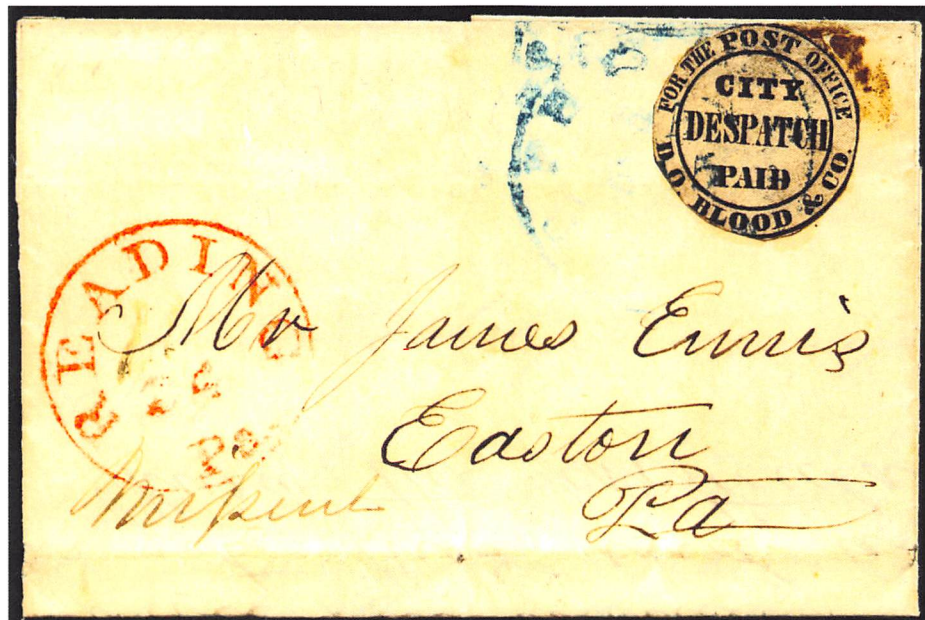 FOR THE POST OFFICE
CITY
DESPATCH
PAID
D.O. BLOOD & CO.
READING
Pa
Mr James Ennis
Easton
Pa